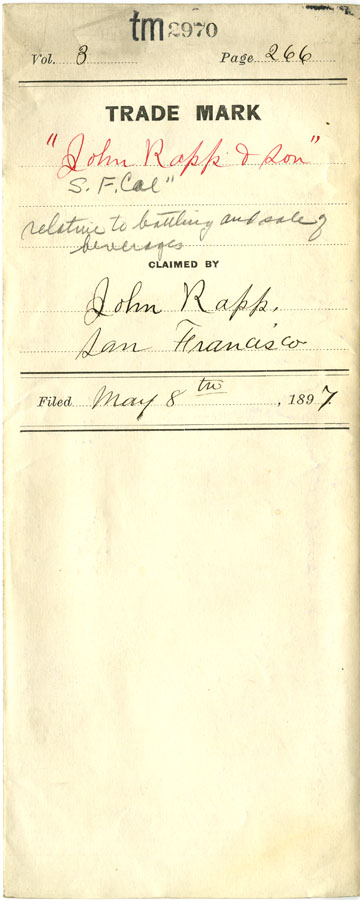 tm 2970
Vol. 3 Page 266
TRADE MARK
"John Rapp & Son"
S. F. Cal"
relative to bottling and sale of
beverages
CLAIMED BY
John Rapp,
San Francisco
Filed May 8th, 1897.